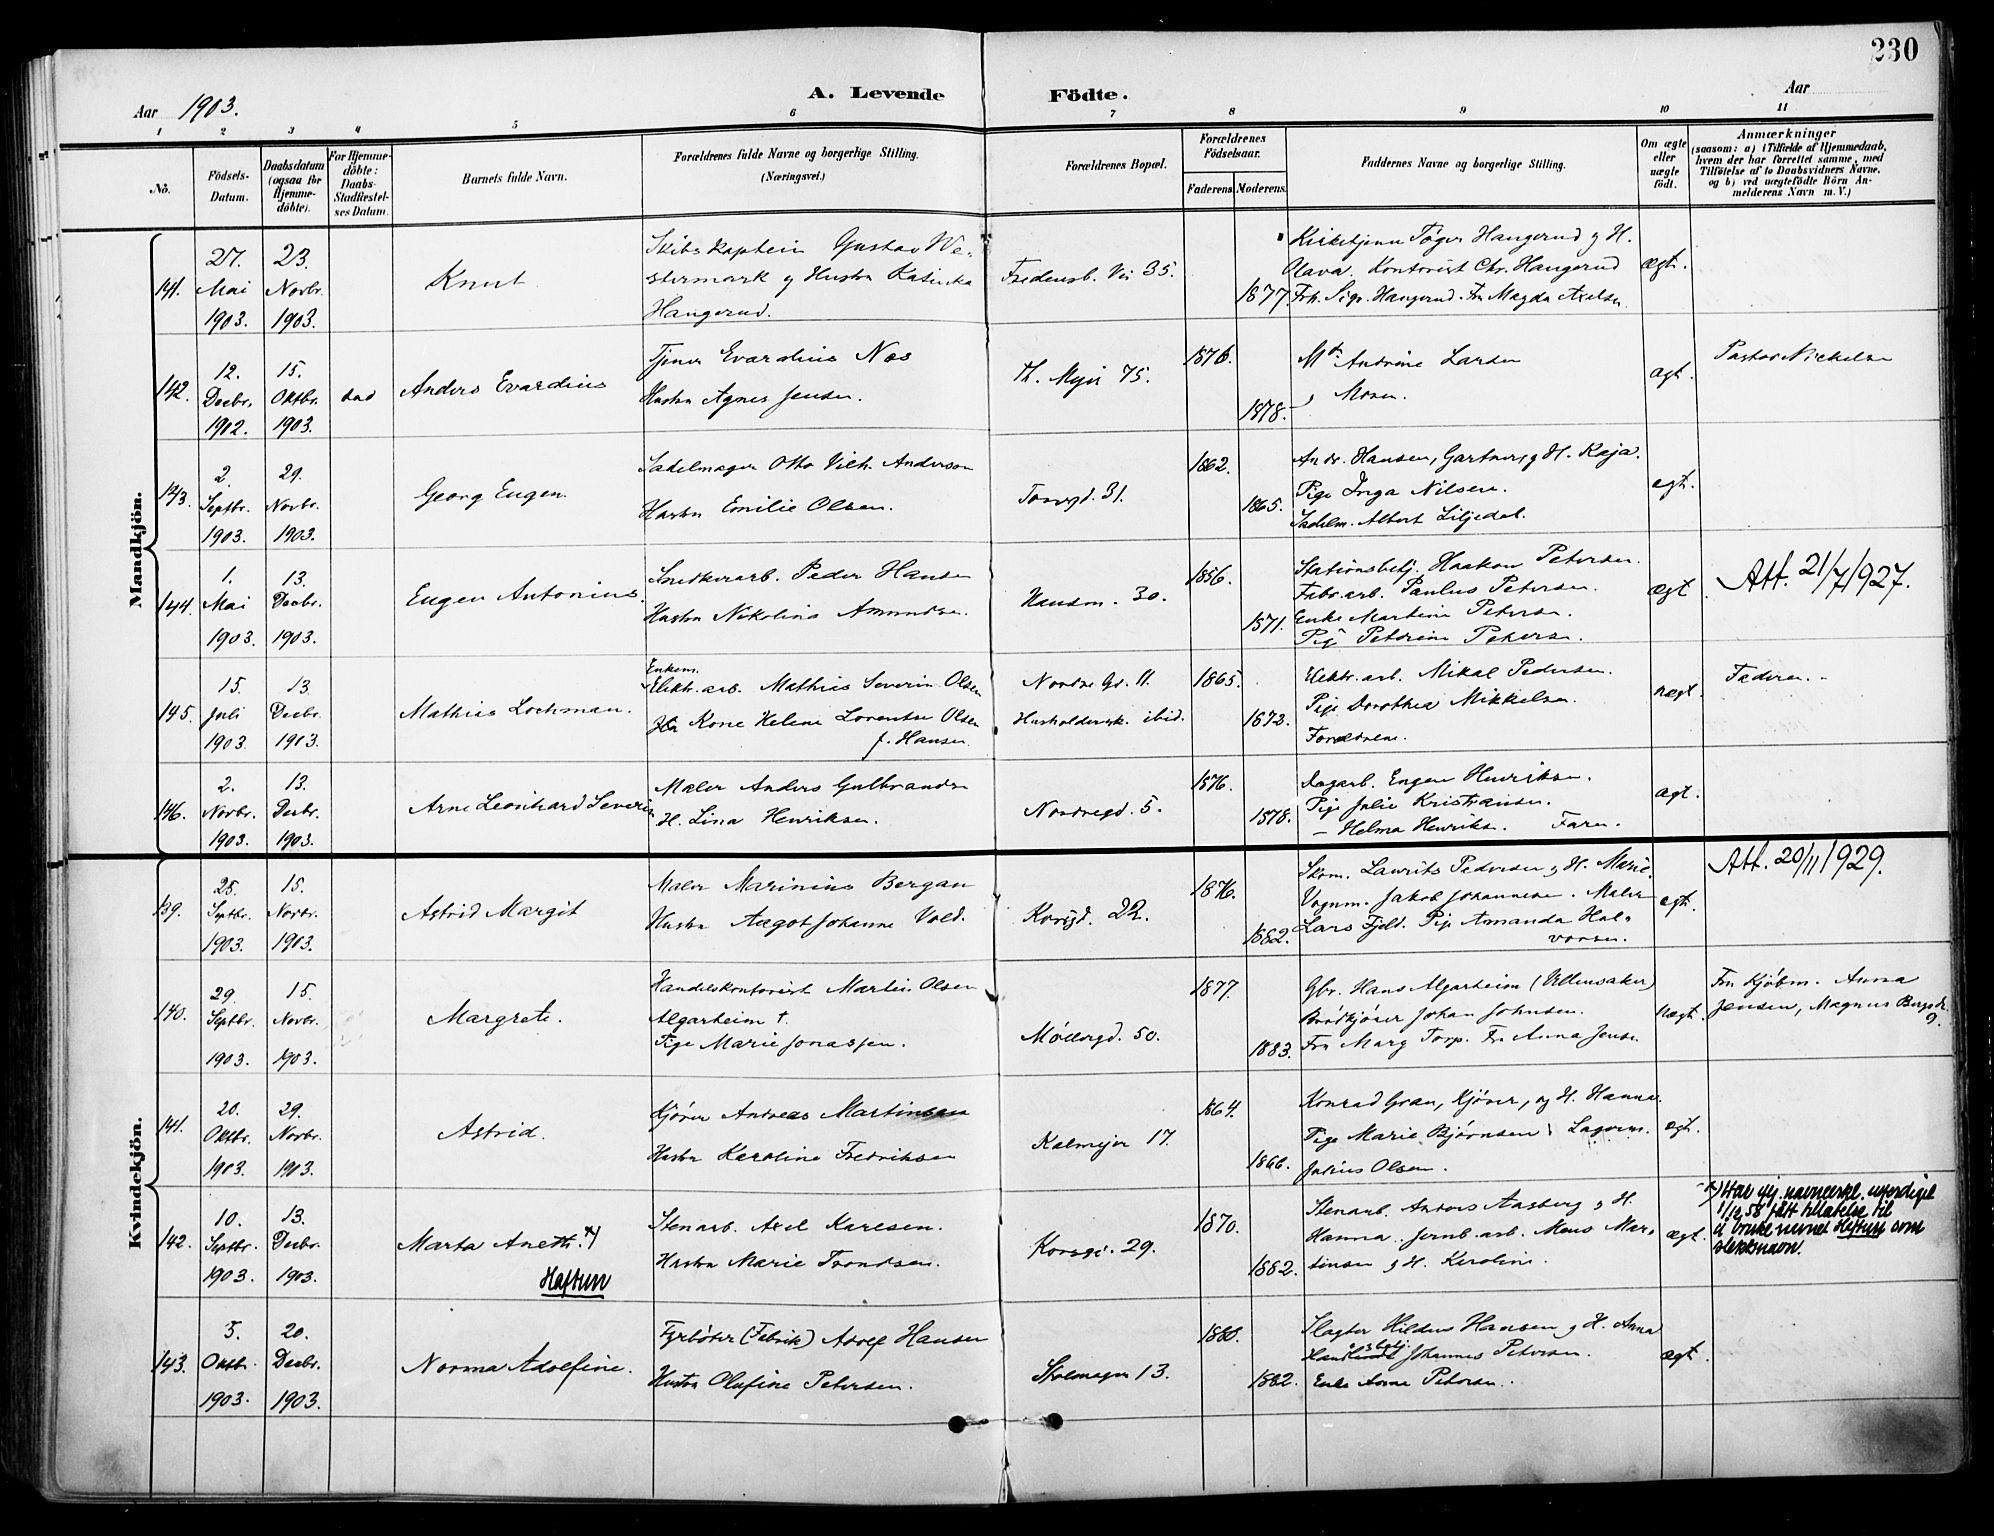 230
Aar 1903.
A. Levende Födte.
Aar
1 2 3 4 5 6 7 8 9 10 11
No.
Födsels-Datum.
Daabsdatum (ogsaa for Hjemme-döbte).
For Hjemme-döbte: Daabs-Stadfæstel-ses Datum.
Barnets fulde Navn.
Forældrenes fulde Navne og borgerlige Stilling. (Næringsvei.)
Forældrenes Bopæl.
Forældrenes Födselsaar.
Faderens. Moderens.
Faddernes Navne og borgerlige Stilling.
Om ægte eller uægte födt.
Anmærkninger
(saasom: a) i Tilfælde af Hjemmedaab, hvem der har forrettet samme, med Tilföielse af to Daabsvidners Navne, og b) ved uægtefödte Börn An-melderens Navn m. V.)
Mandkjön.
141. 27. Mai 1903. 23. Novbr. 1903.
Knut
Skibskaptein Gustav We-
stermark g Hustru Katinka
Hangerud.
Fredensb. Vei 35.
1877
Kirketjener Tøger Hangerud g H.
Olava. Kontorist Chr. Hangerud
Frk. Sigr. Hangerud. Fru Magda Axelsen
ægt.
142. 12. Decbr. 1902. 15. Oktbr. 1903.
Anders Evardius
Tjener Evardius Næs
Hustru Agnes Jensen.
Th. Myir 75.
1876. 1878.
Md. Andrine Larsen
Moren.
ægt.
Pastor Nickelsen
143. 2. Septbr. 1903. 29. Novbr. 1903.
Georg Eugen
Sadelmager Otto Vilh. Anderson
Hustru Emilie Olsen.
Torvgd. 31.
1862. 1865.
Andr. Hansen, Gartner, g H. Kaja.
Pige Inga Nilsen.
Sadelm. Albert Liljedal.
ægt.
144. 1. Mai 1903. 13. Decbr. 1903.
Eugen Antonius.
Snedkerarb. Peder Hansen
Hustru Nikoline Amundsen.
Hausm. 30.
1856. 1871.
Stationsbetj. Haakon Petersen.
Fabr. arb. Paulus Petersen.
Enke Martine Petersen.
Pige Petrine Petersen.
ægt.
Att. 21/7/1927.
145. 15. Juli 1903. 13. Decbr. 1903.
Mathias Lochman.
Enkem.
Elektr. arb. Mathias Severin Olsen
Kone Helene Lorentse Olsen
f. Hansen
Nordre Gd. 11.
Husholderske ibid.
1865. 1872.
Elektr. arb. Mikal Pedersen.
Pige Dorothea Mikkelsen.
Forældrene.
uægt.
Faderen.
146. 2. Novbr. 1903. 13. Decbr. 1903.
Arne Leonhard Severin
Maler Anders Gulbrandsen
H. Lina Henriksen.
Nordregd. 5.
1876. 1878.
Dagarb. Eugen Henriksen.
Pige Julie Kristiansen.
— Helma Henriks. Faren.
ægt.
Kvindekjön.
139. 25. Septbr. 1903. 15. Novbr. 1903.
Astrid Margit
Maler Marinius Bergan
Hustru Aagot Johanne Vold.
Korsgd. 22.
1876. 1882.
Skom. Laurits Pedersen g H. Marie.
Vognm. Jakob Johannesen. Maler
Lars Fjeld. Pige Amanda Hal-
vorsen.
ægt.
Att. 20/11 1929.
140. 29. Septbr. 1903. 15. Novbr. 1903.
Margrete.
Handelskontorist Martin Olsen
Algarheim †.
Pige Marie Jonassen.
Møllergd. 50.
1877. 1883.
Gbr. Hans Algarheim (Ullensaker)
Brødkjører Johan Johnsen.
Fru Marg Torp. Fru Anna Jensen
uægt.
Fru Kjøbm. Anna
Jensen, Magnus Bergsgd.
9.
141. 20. Oktbr. 1903. 29. Novbr. 1903.
Astrid.
Kjører Andreas Martinsen
Hustru Karoline Fredriksen
Kalmejer 17.
1864. 1866.
Konrad Gran, Kjører, og H. Hanna.
Pige Marie Bjørnsen. Lagerm.
Julius Olsen.
ægt.
142. 10. Septbr. 1903. 13. Decbr. 1903.
Marta Aneth. x)
Haftun
Stenarb. Axel Karlsen.
Hustru Marie Trondsen.
Korsgd. 29.
1870. 1882.
Stenarb. Anders Aasberg g H.
Hanna. Jernb. arb. Mons Mar-
tinsen g H. Karoline.
ægt.
x) Har flg. navneerkl. utferdiget
1/12 58 fått tillatelse til
å bruke navnet Haftun som
slektsnavn.
143. 5. Oktbr. 1903. 20. Decbr. 1903.
Norma Adolfine.
Fyrbøter (Fabrik) Adolf Hansen
Hustru Olufine Petersen.
Stolmager 13.
1880. 1882.
Slagter Hildus Hansen g H. Anna
Johannes Petersen.
Enke Anne Petersen.
ægt.